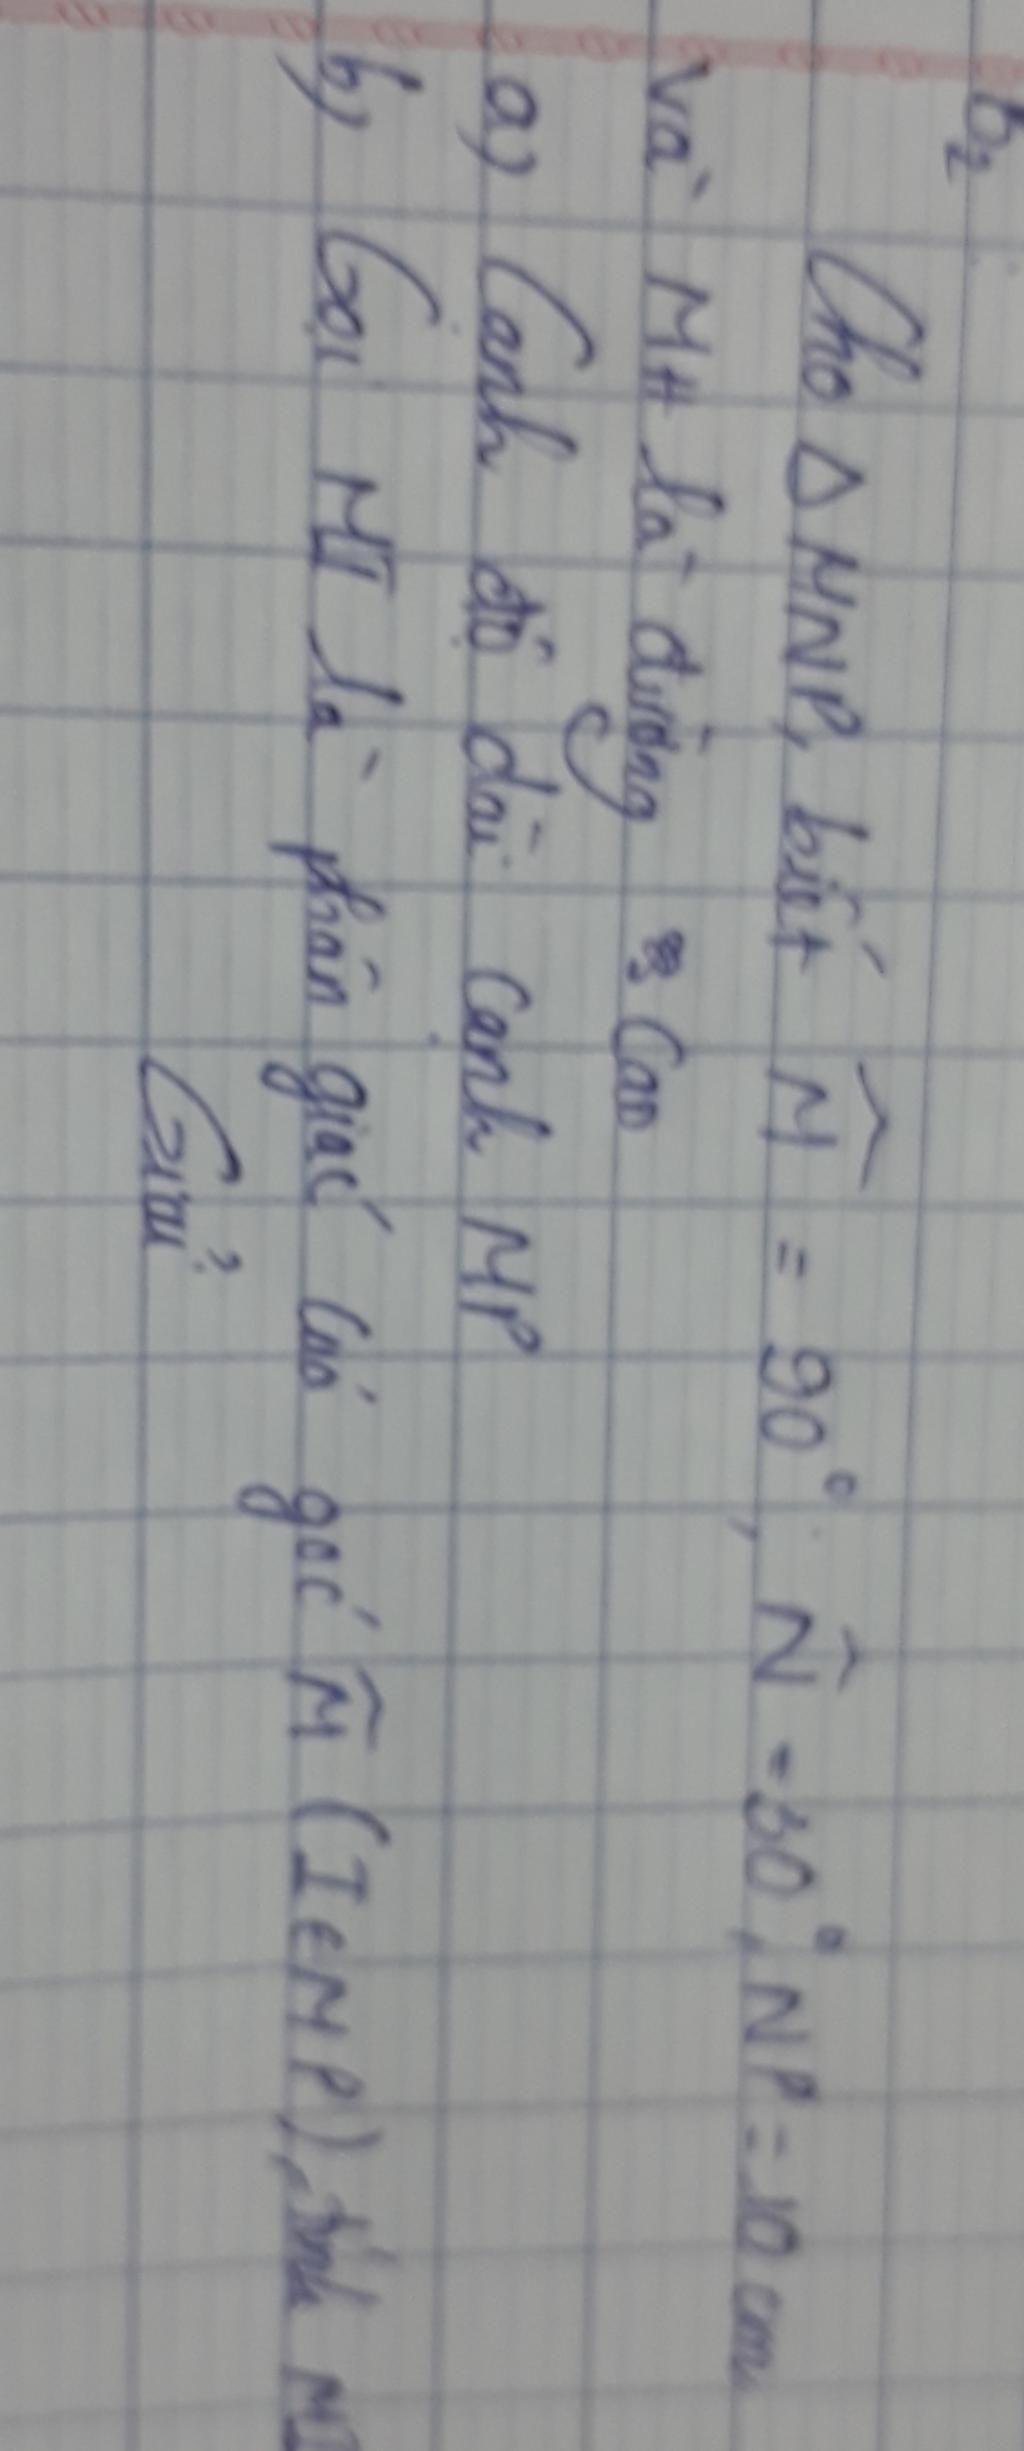 B2
Cho Δ MNP, biết M̂ = 90°, N̂ = 30°, NP = 10 cm
và MH là đường cao
a) Cạnh độ dài cạnh MP
b) Gọi MI là phân giác của góc M̂ (I ∈ MP), tính MI
Giải